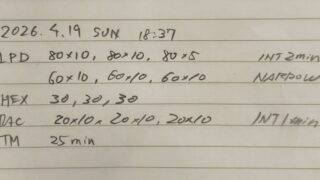 2026. 4.19 SUN 18:37
LPD 80×10, 80×10, 80×5 INT 2min
60×10, 60×10, 60×10 NARROW
HEX 30, 30, 30
20×10, 20×10, 20×10 INT 1min
TM 25 min